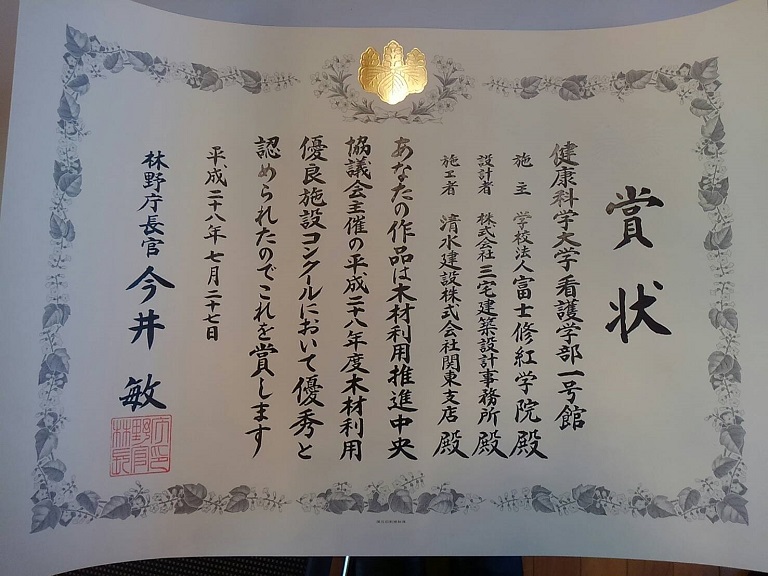 賞状
健康科学大学看護学部一号館
施主 学校法人富士修紅学院 殿
設計者 株式会社三宅建築設計事務所 殿
施工者 清水建設株式会社関東支店 殿
あなたの作品は木材利用推進中央
協議会主催の平成二十八年度木材利用
優良施設コンクールにおいて優秀と
認められたのでこれを賞します
平成二十八年七月二十七日
林野庁長官 今井 敏